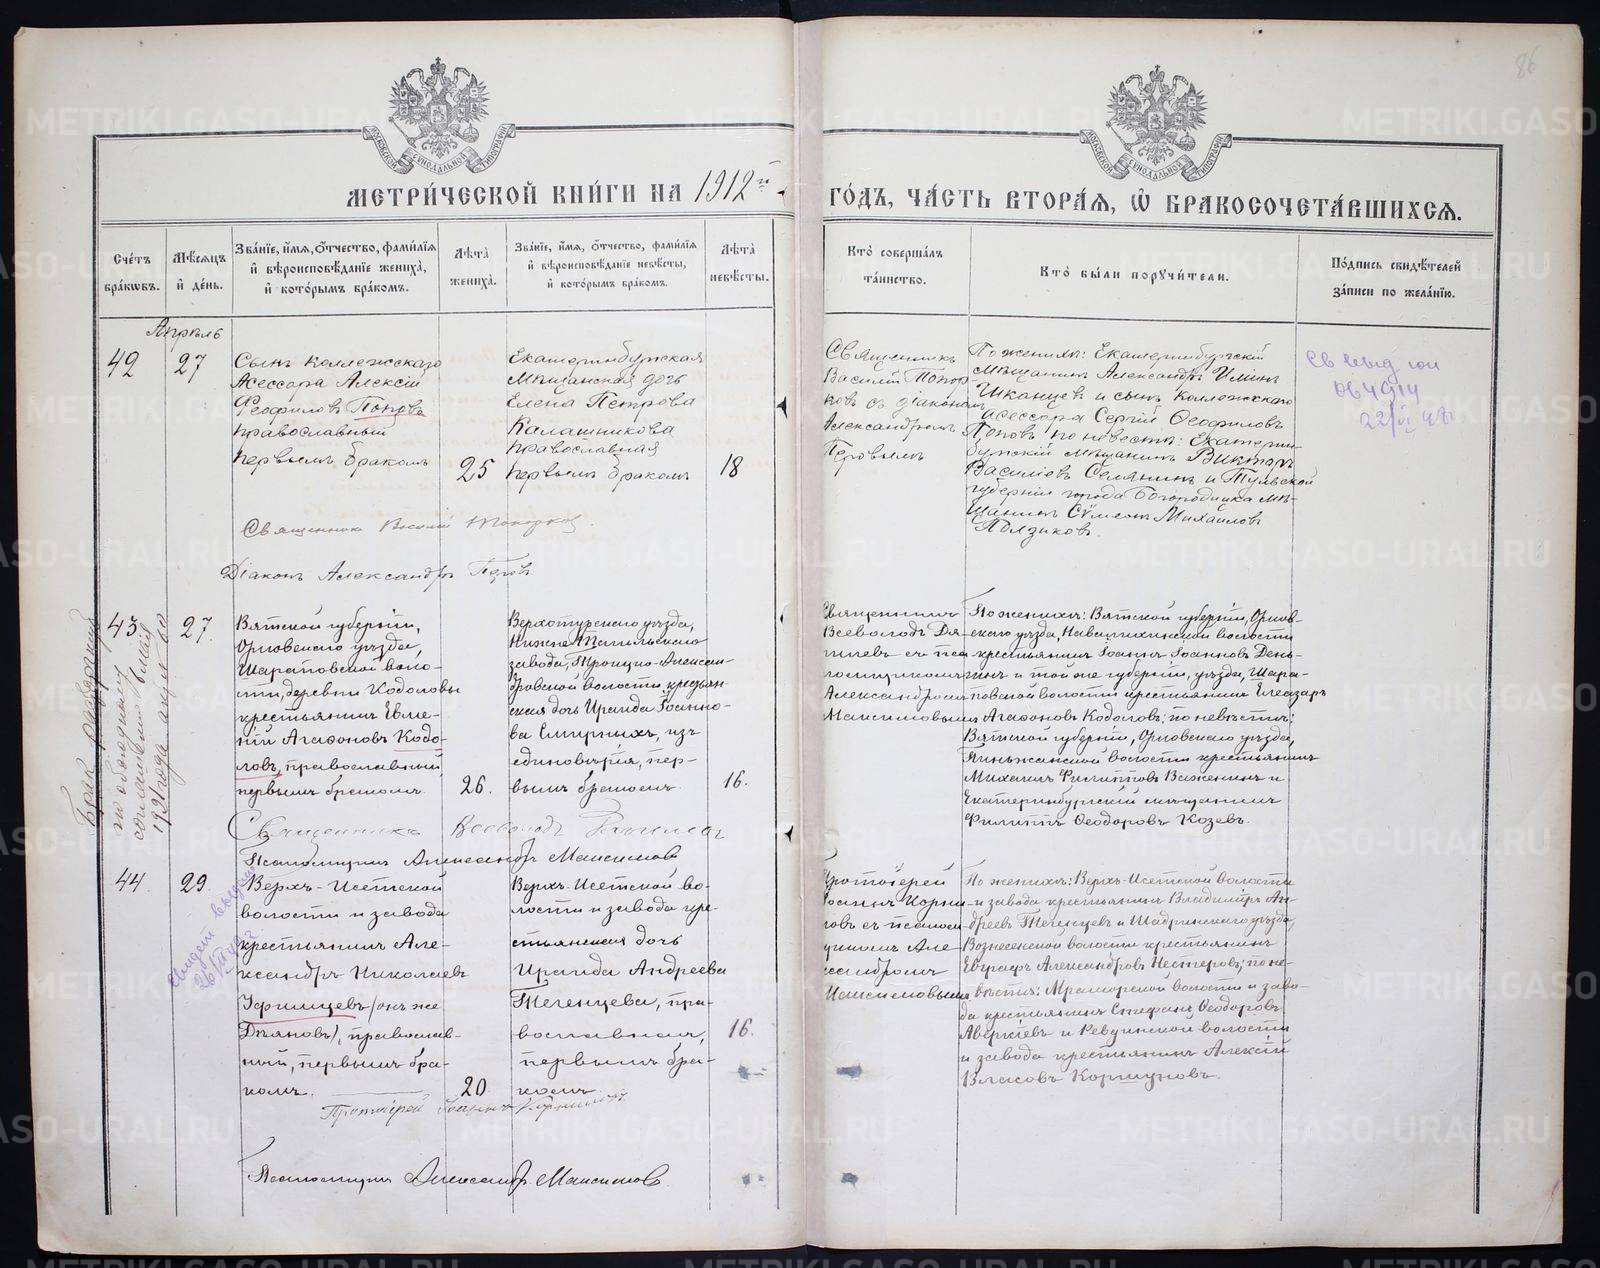 86
МОСКОВСКОЙ СѴНОДАЛЬНОЙ ТИПОГРАФІИ
МОСКОВСКОЙ СѴНОДАЛЬНОЙ ТИПОГРАФІИ
МЕТРИ́ЧЕСКОЙ КНИ́ГИ НА 1912й
ГО́ДЪ, ЧА́СТЬ ВТОРА́Я, Ѿ БРАКОСОЧЕТА́ВШИХСЯ.
Сче́тъ бра́кѡвъ.
Мѣ́сяцъ и҆ де́нь.
Зва́нїе, и҆́мя, ѻ҆́тчество, фами́лїя и҆ вѣроисповѣ́данїе жениха̀, и҆ кото́рымъ бра́комъ.
Лѣта̀ жениха̀.
Зва́нїе, и҆́мя, ѻ҆́тчество, фами́лїя и҆ вѣроисповѣ́данїе невѣ́сты, и҆ кото́рымъ бра́комъ.
Лѣта̀ невѣ́сты.
Кто̀ соверша́лъ та́инство.
Кто̀ бы́ли порꙋчи́тели.
По́дпись свидѣ́телей за́писи по жела́нїю.
Апрѣль
42
27
Сынъ коллежскаго
Асессора Алексій
Ѳеофиловъ Поповъ
православный
первымъ бракомъ
25
Екатеринбургская
мѣщанская дочь
Елена Петрова
Калашникова
православная
первымъ бракомъ
18
Священникъ
Василій Топор-
ковъ съ діакономъ
Александромъ
Перовымъ
По женихѣ: Екатеринбургскій
мѣщанинъ Александръ Ильинъ
Шканцевъ и сынъ коллежскаго
асессора Сергій Ѳеофиловъ
Поповъ по невѣстѣ: Екатерин-
бургскій мѣщанинъ Викторъ
Василіевъ Селянинъ и Тульской
губерніи города Богородицка мѣ-
щанинъ Сѵмеонъ Михайловъ
Ползиковъ.
22/VI 48
Священникъ Василій Топорковъ.
Діаконъ Александръ Перовъ
43
27
Вятской губерніи,
Орловскаго уѣзда,
Шараповской воло-
сти, деревни Кодоловы
крестьянинъ Евме-
ній Агаѳоновъ Кодо-
ловъ, православный
первымъ бракомъ.
26.
Верхотурскаго уѣзда,
Нижне-Тагильскаго
завода, Троицко-Алексан-
дровской волости, крестьян-
ская дочь Ираида Іоанно-
ва Смирныхъ, изъ
единовѣрія, пер-
вымъ бракомъ
16.
Священникъ
Всеволодъ Дя-
гилевъ съ пса-
ломщикомъ
Александромъ
Максимовымъ
По женихѣ: Вятской губерніи, Орлов-
скаго уѣзда, Навалихинской волости
крестьянинъ Іоаннъ Іоанновъ День-
гинъ и той же губерніи, уѣзда, Шара-
повской волости крестьянинъ Елеазаръ
Агаѳоновъ Кодоловъ; по невѣстѣ:
Вятской губерніи, Орловскаго уѣзда,
волости крестьянинъ
Михаилъ Филипповъ Важенинъ и
Екатеринбургскій мѣщанинъ
Филиппъ Ѳеодоровъ Козевъ.
Брак расторгнут
по обоюдному
1921 года
Священникъ Всеволодъ Дягилевъ
Псаломщикъ Александръ Максимовъ
44.
29.
Верхъ-Исетской
волости и завода
крестьянинъ Але-
ксандръ Николаевъ
Уфимцевъ (онъ же
Дѣяновъ), православ-
ный, первымъ бра-
комъ.
20
Верхъ-Исетской во-
лости и завода кре-
стьянская дочь
Ираида Андреева
Тегенцева, пра-
вославная,
первымъ бра-
комъ
16.
Протоіерей
Іоаннъ Корни-
ловъ съ псалом-
щикомъ Але-
ксандромъ
Максимовымъ
По женихѣ: Верхъ-Исетской волости
и завода крестьянинъ Владиміръ Ан-
дреевъ Тегенцевъ и Шадринскаго уѣзда,
Вознесенской волости крестьянинъ
Евграфъ Александровъ Нестеровъ; по не-
вѣстѣ: Мраморской волости и заво-
да крестьянинъ Стефанъ Ѳеодоровъ
Аверкіевъ и Ревдинской волости
и завода крестьянинъ Алексій
Власовъ Коршуновъ.
Протоіерей Іоаннъ Корниловъ
Псаломщикъ Александръ Максимовъ
METRIKI.GASO-URAL.RU